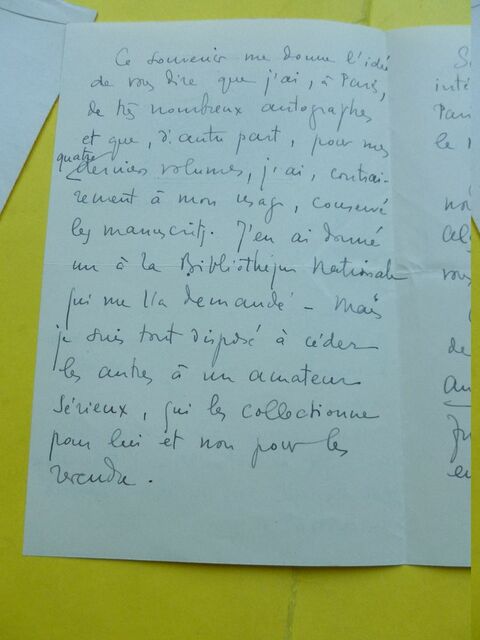 Ce souvenir me donne l'idée
de vous dire que j'ai, à Paris,
de très nombreux autographes
et que, d'autre part, pour mes
quatre
derniers volumes, j'ai, contrai-
rement à mon usage, conservé
les manuscrits. J'en ai donné
un à la Bibliothèque Nationale
qui me l'a demandé – mais
je suis tout disposé à céder
les autres à un amateur
sérieux, qui les collectionne
pour lui et non pour les
revendre.
inté
Pari
le
no
vous
de
en